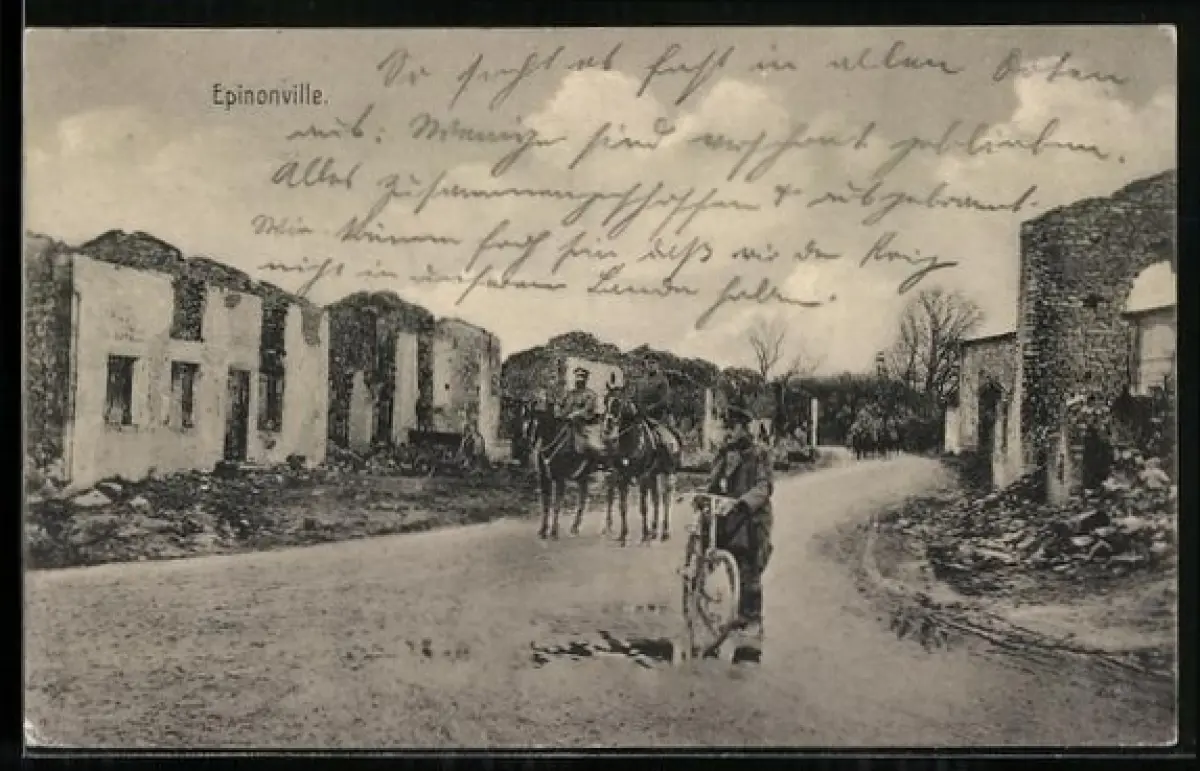 Epinonville.
So sieht es fast in allen Orten
aus. Wenige sind verschont geblieben.
Alles zusammengeschossen & ausgebrannt.
Wir können froh sein daß wir den Krieg
nicht in unserem Lande haben.